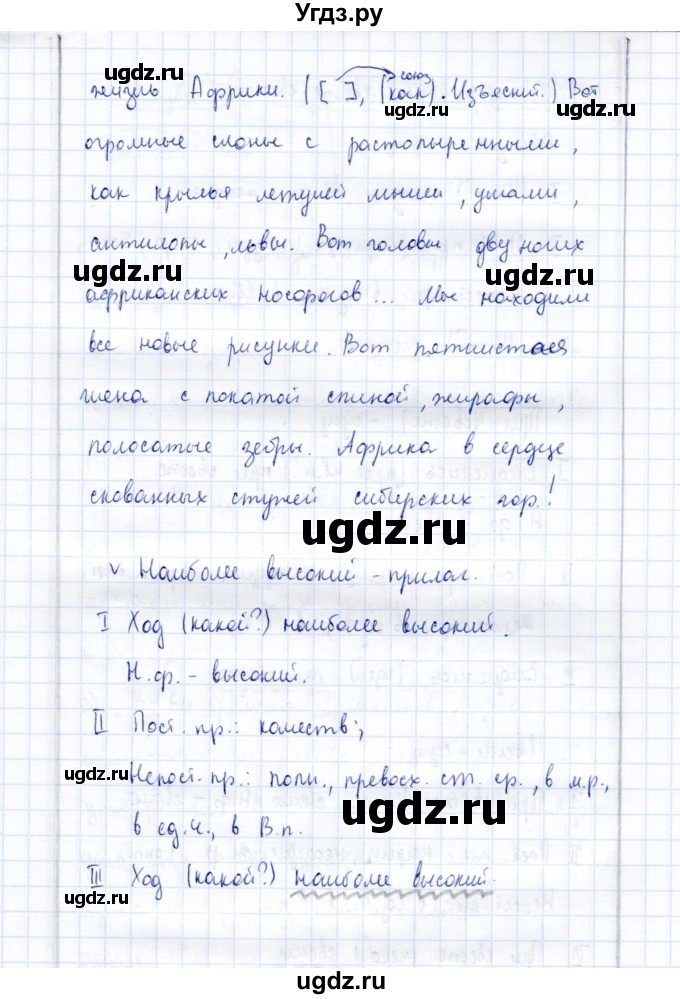 Угдз.ру
жизнь Африки. ([ ], (как). Изъяснит.) Вот
союз
огромные слоны с растопыренными,
как крылья летучей мыши, ушами,
антилопы, львы. Вот головы двуногих
африканских носорогов... Мы находили
все новые рисунки. Вот пятнистая
гиена с покатой спиной, жирафы,
полосатые зебры. Африка в сердце
скованных стужей сибирских гор!
v Наиболее высокий - прилаг.
I Ход (какой?) наиболее высокий.
Н.ф. - высокий.
II Пост. пр.: качеств.,
Непост. пр.: полн., превосх. ст. ср., в м.р.,
в ед.ч., в В.п.
III Ход (какой?) наиболее высокий.
ugdz.ru
ugdz.ru
ugdz.ru
ugdz.ru
ugdz.ru
ugdz.ru
ugdz.ru
ugdz.ru
ugdz.ru
ugdz.ru
ugdz.ru
ugdz.ru